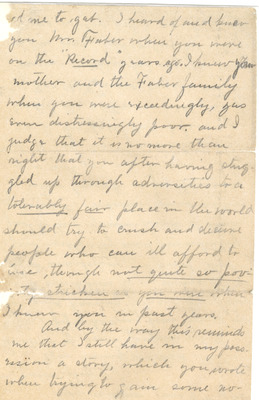 of me to get. I heard of and knew
you Mrs. Faber when you were
on the "Record" years ago. I knew your
mother and the Faber family
when you were exceedingly, yes
even distressingly poor. and I
judge that it is no more than
right that you after having strug
gled up through adversities to a
tolerably fair place in the world
should try to crush and
people who can ill afford to
though not quite so pov
erty stricken as you were when
I knew you in past years.
And by the way this reminds
me that I still have in my poss
ession a story, which you wrote
when trying to gain some no-